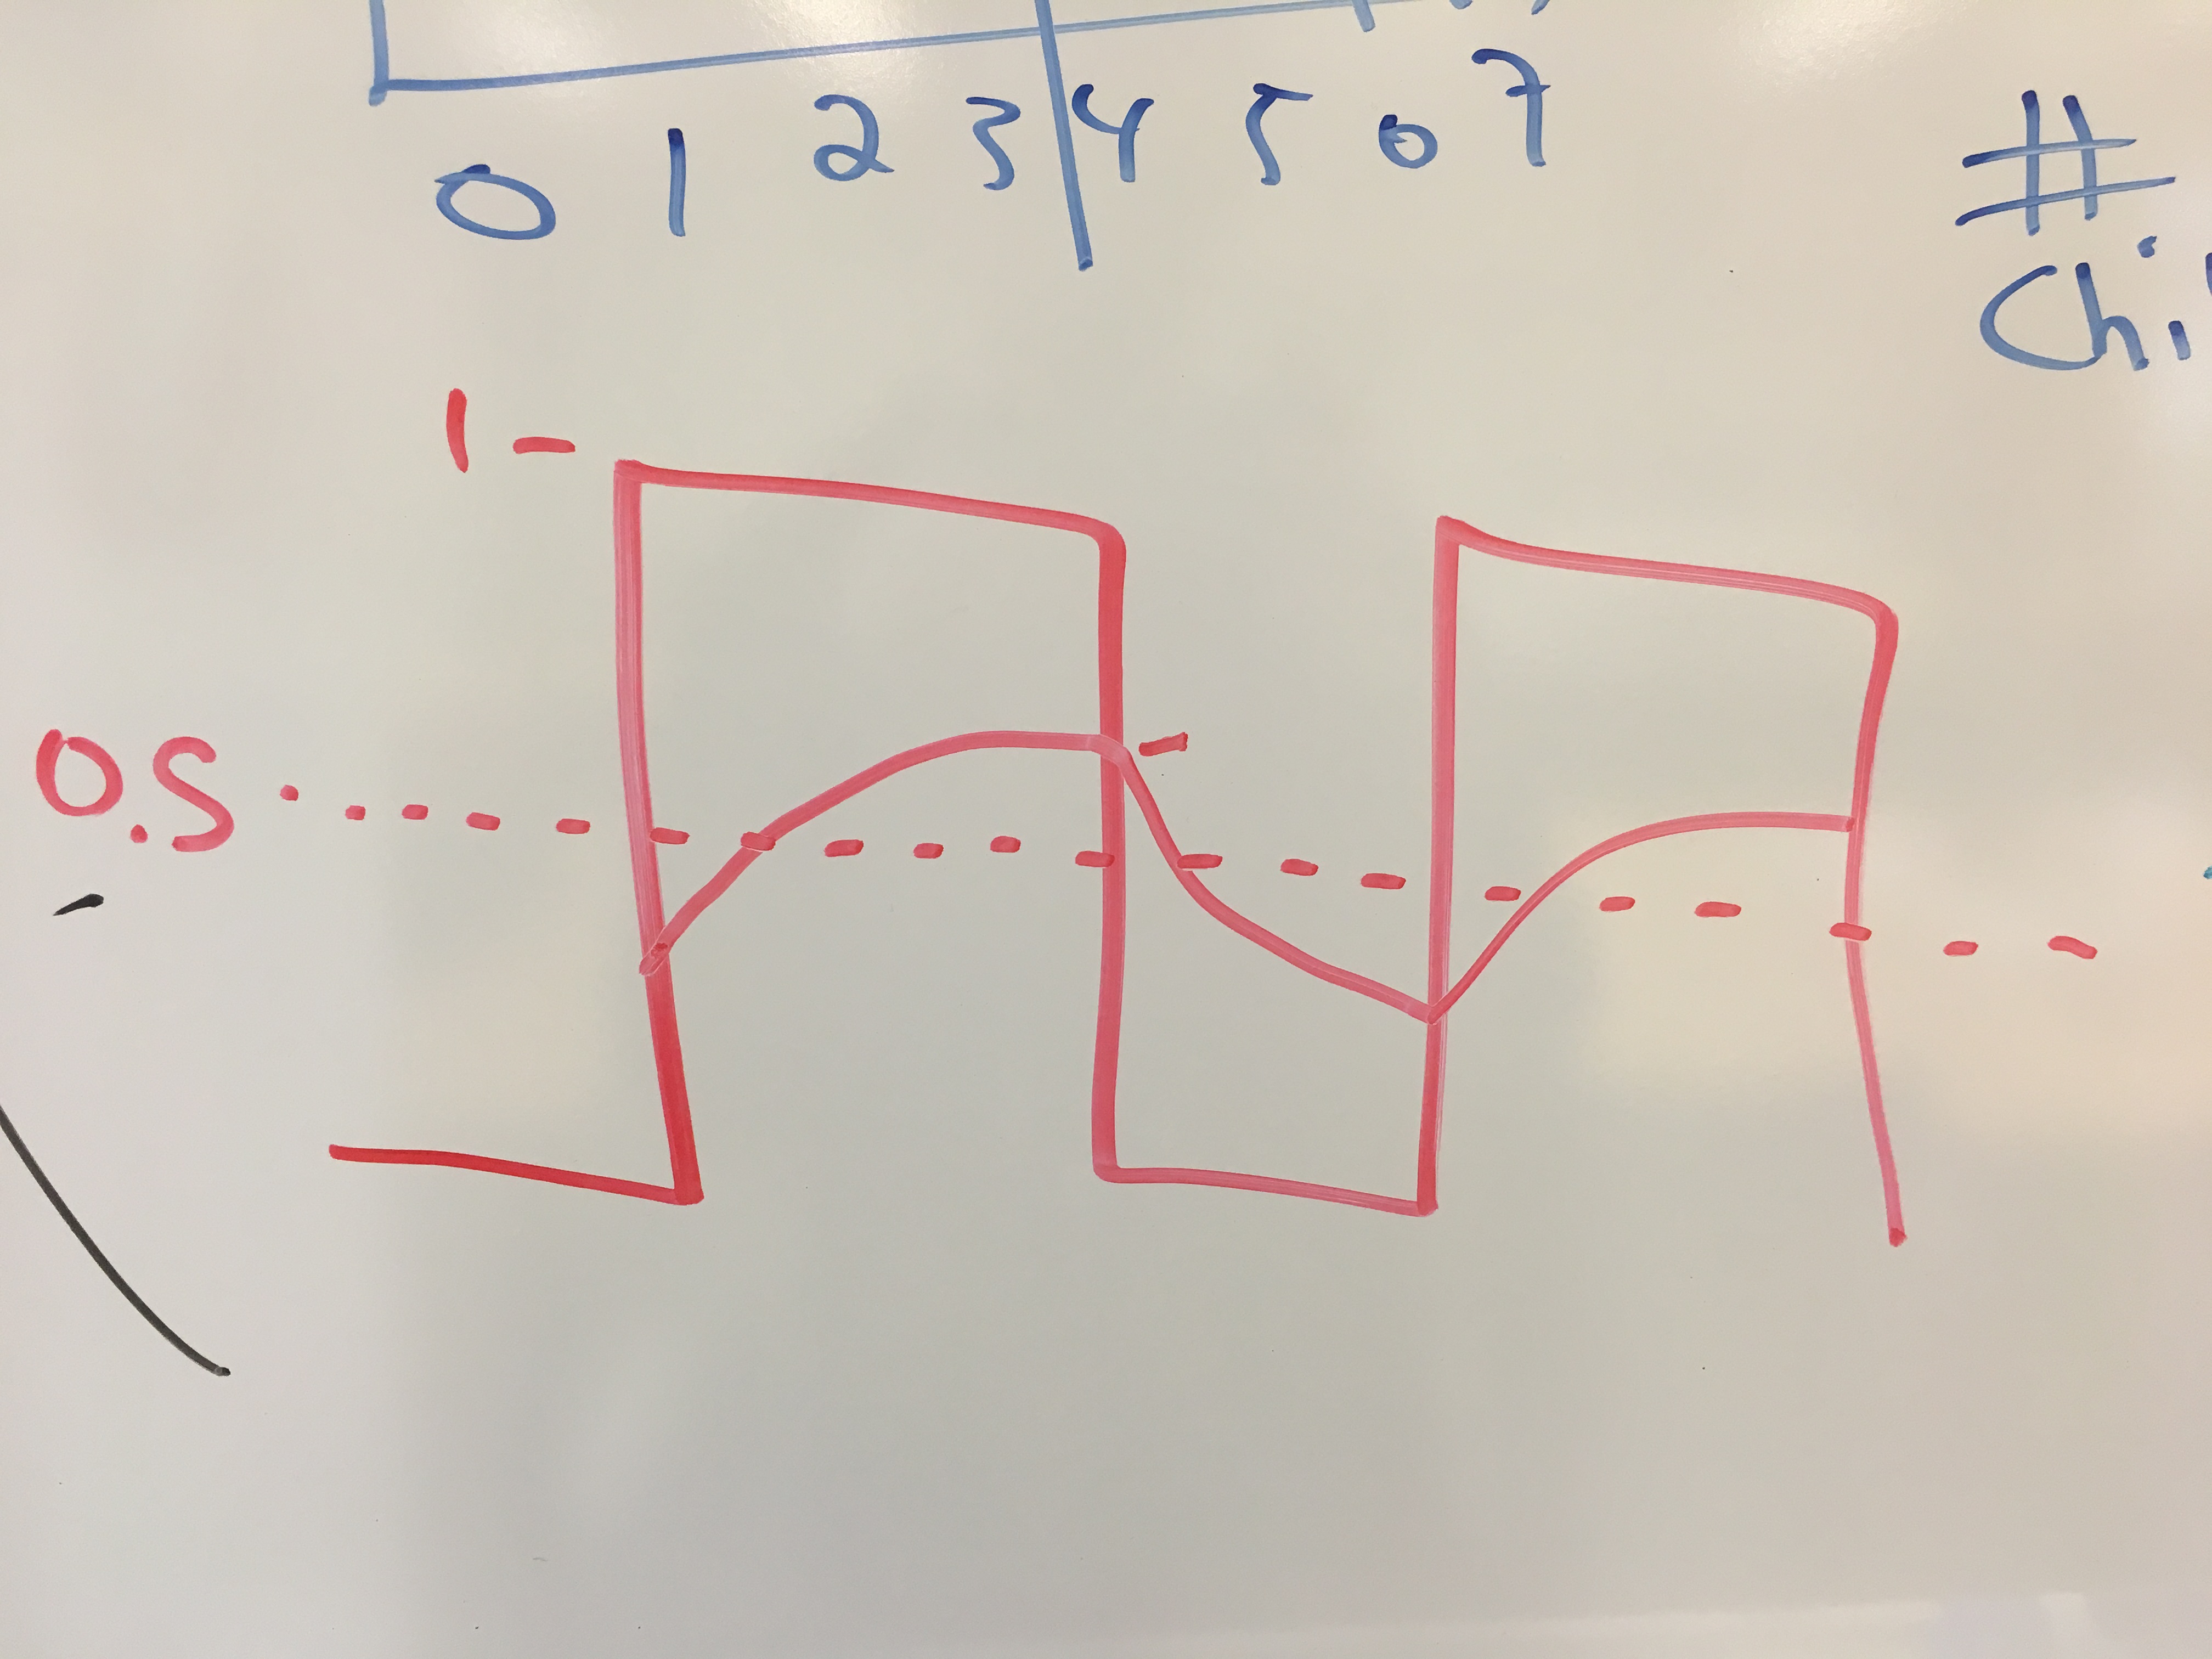 0 1 2 3 4 5 6 7
#
Chi
1
0.5